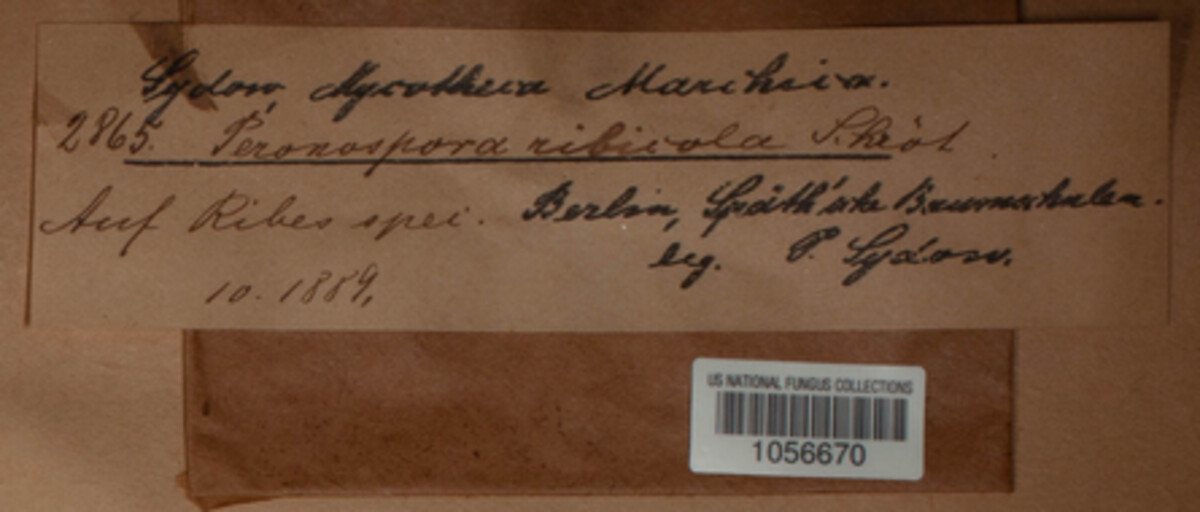 Sydow, Mycotheca Marchica.
2865. Peronospora ribicola Schröt.
Auf Ribes spei. Berlin, Späth'sche Baumschulen.
leg. P. Sydow.
10. 1889.
US NATIONAL FUNGUS COLLECTIONS
1056670